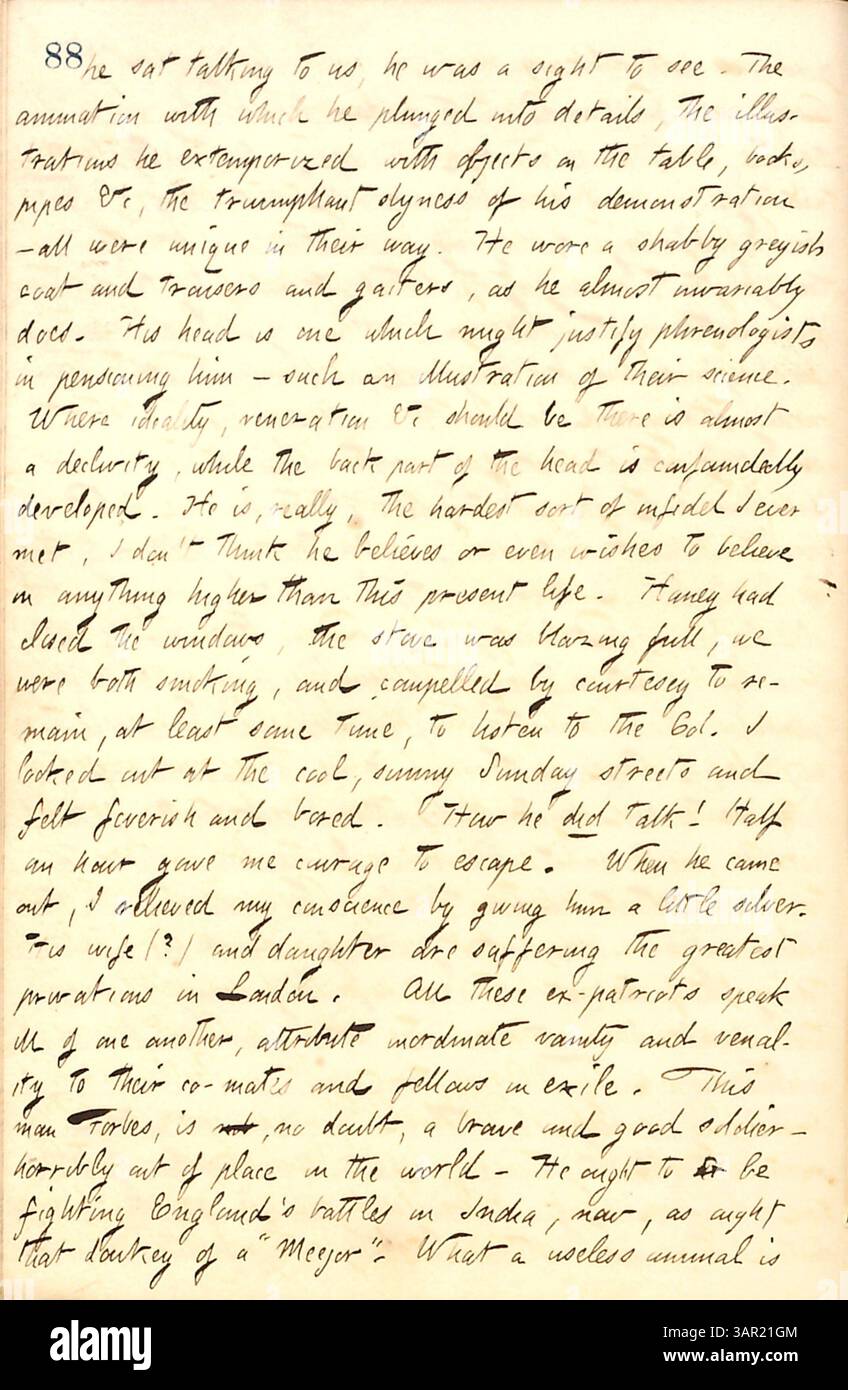 88
he sat talking to us, he was a sight to see. The
animation with which he plunged into details, the illus-
trations he extemporized with objects on the table, books,
pipes &c, the triumphant slyness of his demonstration
—all were unique in their way. He wore a shabby greyish
coat and trousers and gaiters, as he almost invariably
does. His head is one which might justify phrenologists
in pensioning him — such an illustration of their science.
Where ideality, veneration &c should be there is almost
a declivity, while the back part of the head is confoundedly
developed. He is, really, the hardest sort of infidel I ever
met, I don't think he believes or even wishes to believe
in anything higher than this present life. Haney had
closed the windows, the stove was blazing full, we
were both smoking, and compelled by courtesey to re-
main, at least some time, to listen to the Col. I
looked out at the cool, sunny Sunday streets and
felt feverish and bored. How he did talk! Half
an hour gave me courage to escape. When he came
out, I relieved my conscience by giving him a little silver.
His wife (?) and daughter are suffering the greatest
privations in London. All these ex-patriots speak
ill of one another, attribute inordinate vanity and venal-
ity to their co-mates and fellows in exile. This
man Forbes, is , no doubt, a brave and good soldier —
horribly out of place in the world — He ought to be
fighting England's battles in India, now, as ought
that donkey of a "Meejor". What a useless animal is
alamy
Image ID: 3AR21GM
www.alamy.com